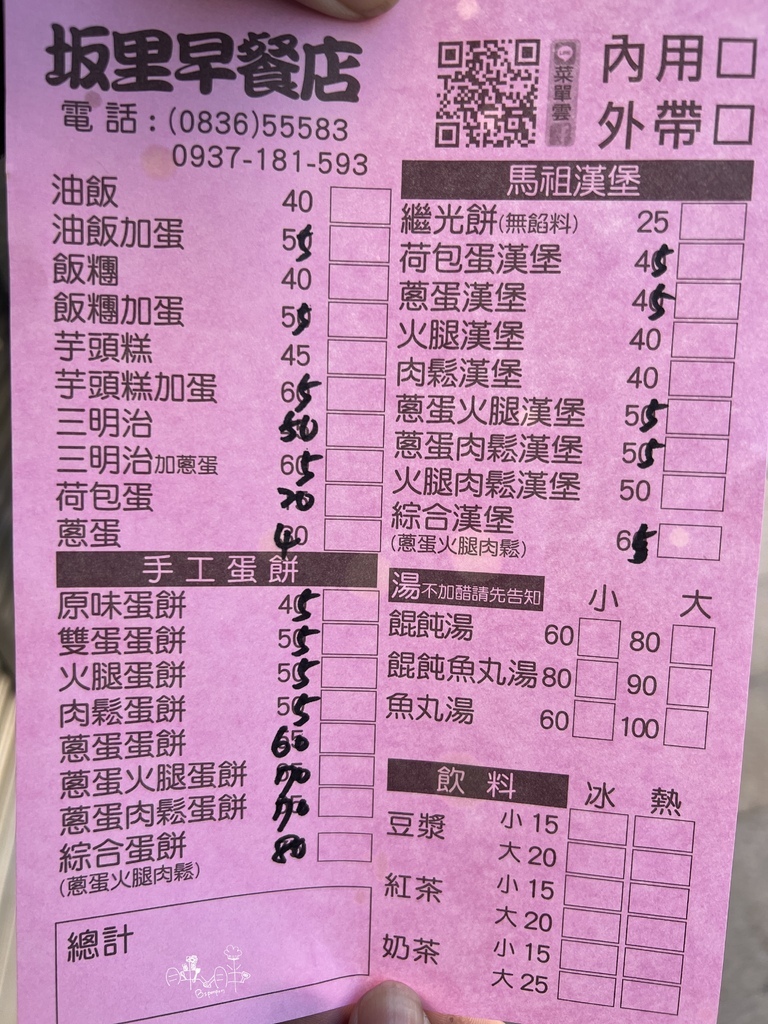 坂里早餐店
電話：(0836)55583
0937-181-593
LINE
菜單雲
內用□
外帶□
油飯 40
油飯加蛋 55
飯糰 40
飯糰加蛋 55
芋頭糕 45
芋頭糕加蛋 65
三明治 50
三明治加蔥蛋 65
荷包蛋 20
蔥蛋 40
手工蛋餅
原味蛋餅 45
雙蛋蛋餅 55
火腿蛋餅 55
肉鬆蛋餅 55
蔥蛋蛋餅 60
蔥蛋火腿蛋餅 70
蔥蛋肉鬆蛋餅 70
綜合蛋餅 80
(蔥蛋火腿肉鬆)
總計
馬祖漢堡
繼光餅(無餡料) 25
荷包蛋漢堡 45
蔥蛋漢堡 45
火腿漢堡 40
肉鬆漢堡 40
蔥蛋火腿漢堡 55
蔥蛋肉鬆漢堡 55
火腿肉鬆漢堡 50
綜合漢堡 65
(蔥蛋火腿肉鬆)
湯不加醋請先告知 小 大
餛飩湯 60 80
餛飩魚丸湯 80 90
魚丸湯 60 100
飲料 冰 熱
豆漿 小 15
大 20
紅茶 小 15
大 20
奶茶 小 15
大 25